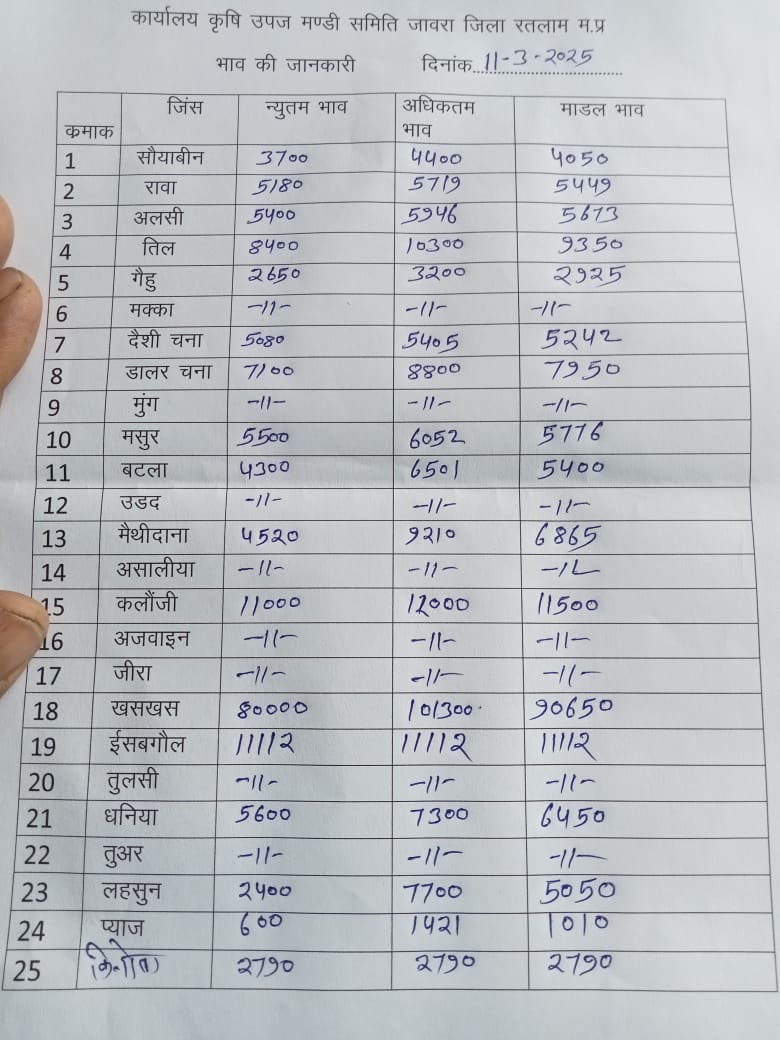 कार्यालय कृषि उपज मण्डी समिति जावरा जिला रतलाम म.प्र
भाव की जानकारी दिनांक 11-3-2025
कमाक जिंस न्युतम भाव अधिकतम भाव माडल भाव
1 सौयाबीन 3700 4400 4050
2 रावा 5180 5719 5449
3 अलसी 5400 5946 5673
4 तिल 8400 10300 9350
5 गैहु 2650 3200 2925
6 मक्का -11- -11- -11-
7 दैशी चना 5080 5405 5242
8 डालर चना 7100 8800 7950
9 मुंग -11- -11- -11-
10 मसुर 5500 6052 5776
11 बटला 4300 6501 5400
12 उडद -11- -11- -11-
13 मैथीदाना 4520 9210 6865
14 असालीया -11- -11- -11-
15 कलौंजी 11000 12000 11500
16 अजवाइन -11- -11- -11-
17 जीरा -11- -11- -11-
18 खसखस 80000 101300 90650
19 ईसबगौल 11112 11112 11112
20 तुलसी -11- -11- -11-
21 धनिया 5600 7300 6450
22 तुअर -11- -11- -11-
23 लहसुन 2400 7700 5050
24 प्याज 600 1421 1010
25 2790 2790 2790